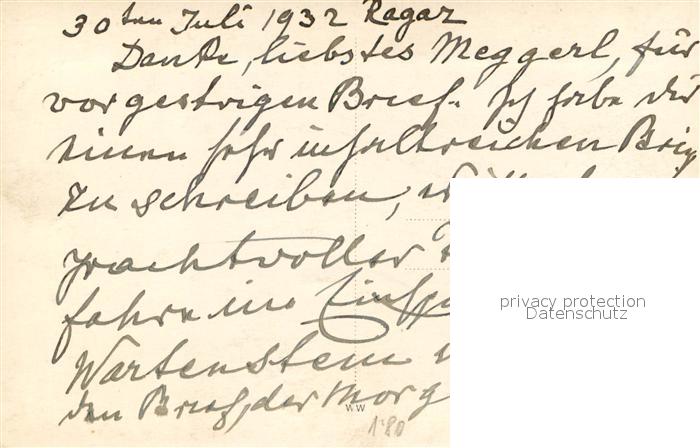 30ten Juli 1932 Ragaz
Danke, liebstes Meggerl, für
vorgestrigen Brief. Ich habe dir
einen sehr inhaltreichen Brief
zu schreiben,
prachtvoller
fahre im Einspä
Wartenstein
den Brief, der Morg
privacy protection
Datenschutz
WW
1.80